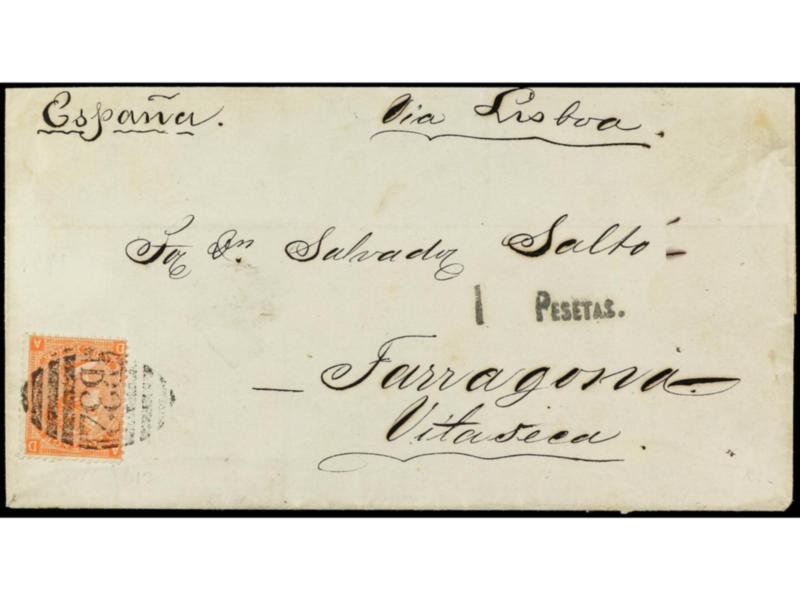 España. Via Lisboa.
Sor Dn Salvador Saltó
1 PESETAS.
Tarragona
Vitaseca.
D A
A D